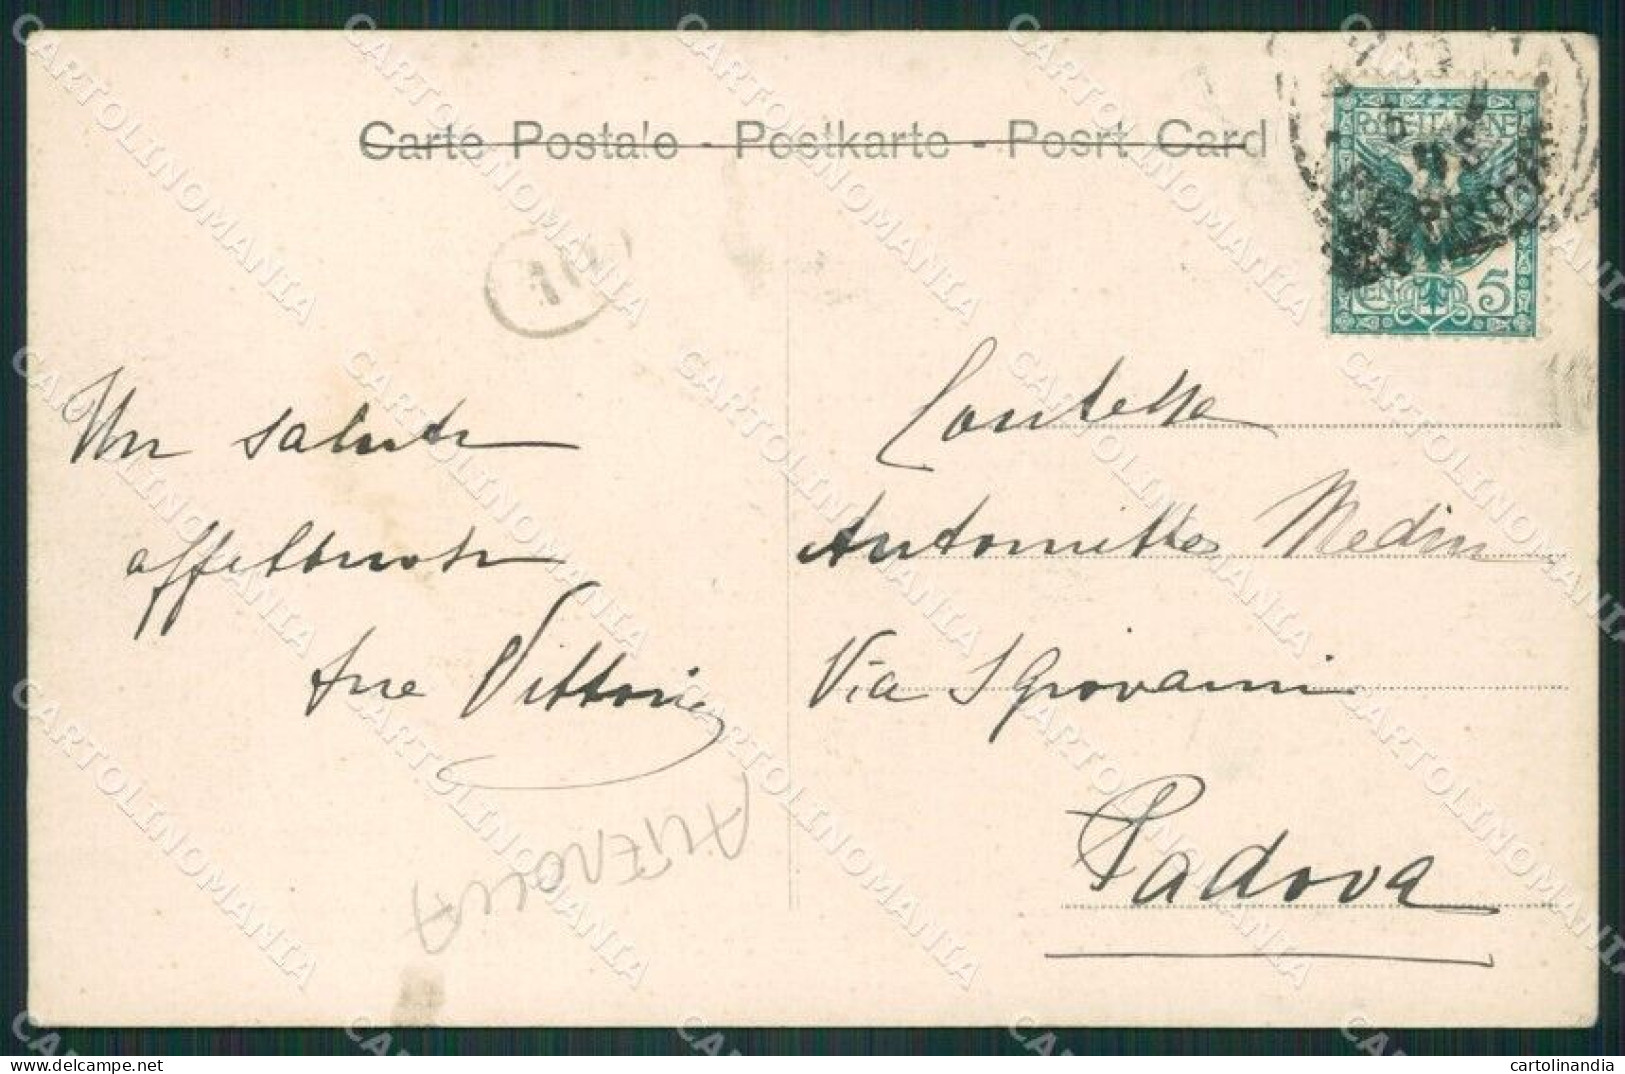 Carte Postale - Postkarte - Posrt Card
POSTE ITALIANE
CEN 5
10
Un saluto
affettuoso
Vittoria
Contessa
Antonietta Medin
Via S Giovanni
Padova
CARTOLINOMANIA
cartolinandia